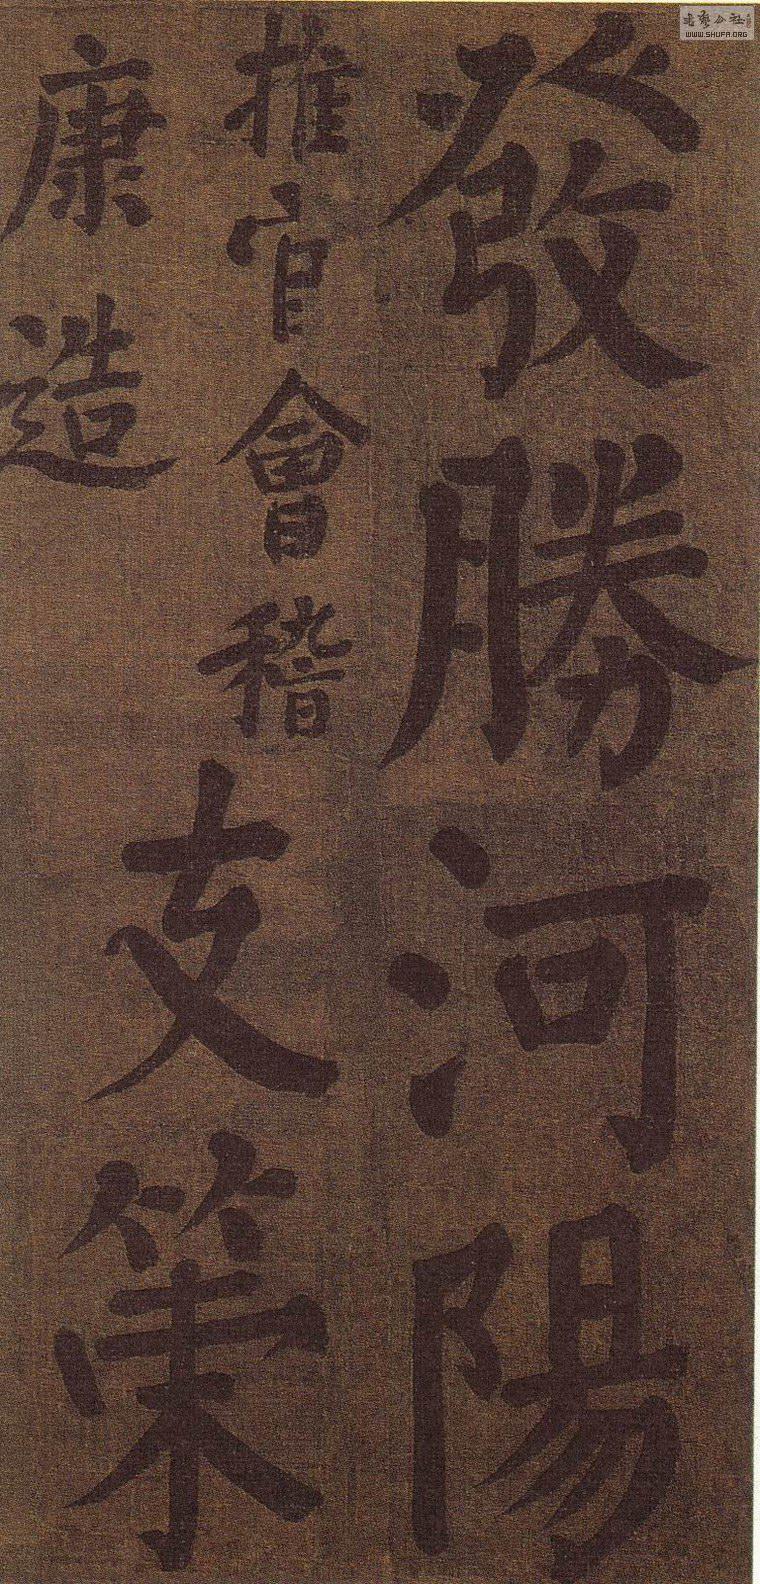 發勝河陽
推官會稽
康造
支策
書藝公社
WWW.SHUFA.ORG